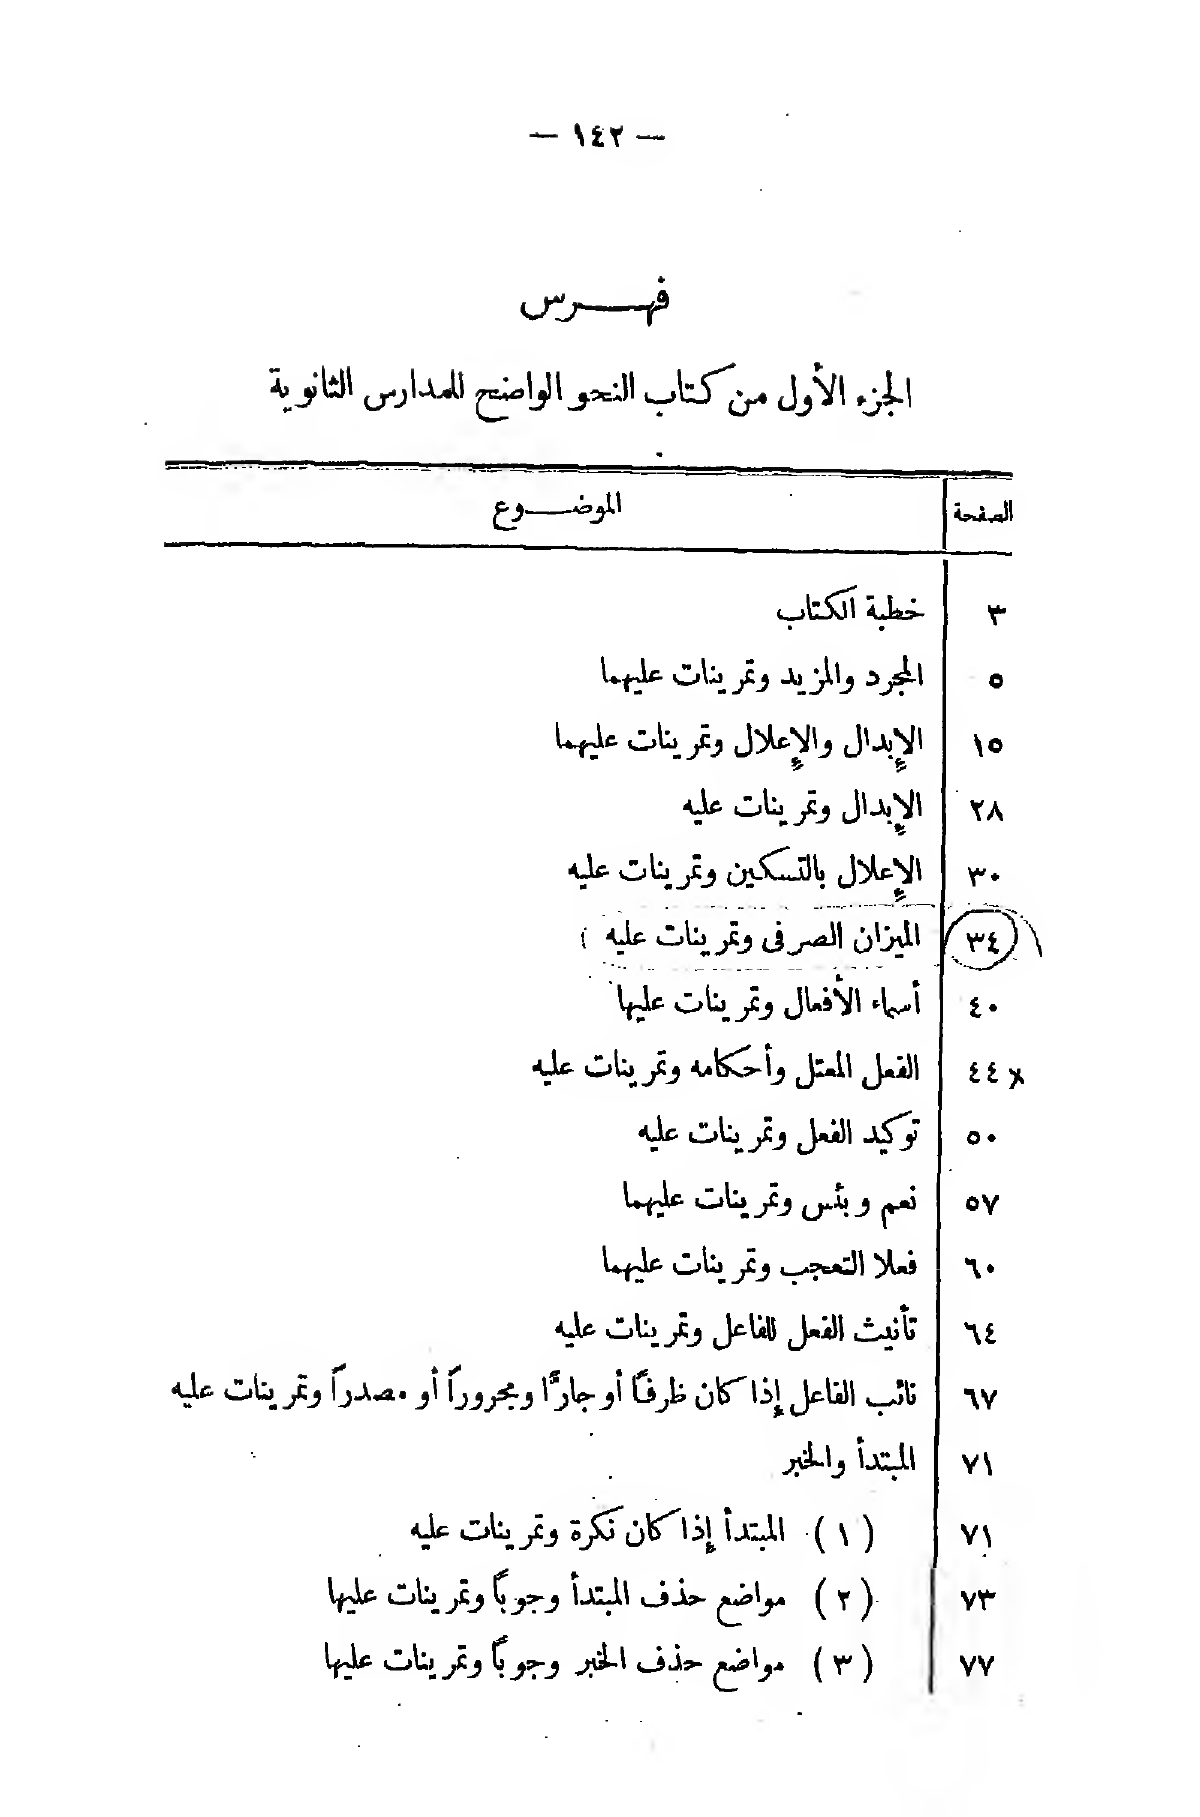 — ١٤٢ —
فهـــــرس
الجزء الأول من كتاب النحو الواضح للمدارس الثانوية
الصفحة الموضـــوع
٣ خطبة الكتاب
٥ المجرد والمزيد وتمرينات عليهما
١٥ الإبدال والإعلال وتمرينات عليهما
٢٨ الإبدال وتمرينات عليه
٣٠ الإعلال بالتسكين وتمرينات عليه
٣٤ الميزان الصرفى وتمرينات عليه
٤٠ أسماء الأفعال وتمرينات عليها
x ٤٤ الفعل المعتل وأحكامه وتمرينات عليه
٥٠ توكيد الفعل وتمرينات عليه
٥٧ نعم وبئس وتمرينات عليهما
٦٠ فعلا التعجب وتمرينات عليهما
٦٤ تأنيث الفعل للفاعل وتمرينات عليه
٦٧ نائب الفاعل إذا كان ظرفًا أو جارًّا ومجرورًا أو مصدرًا وتمرينات عليه
٧١ المبتدأ والخبر
٧١ (١) المبتدأ إذا كان نكرة وتمرينات عليه
٧٣ (٢) مواضع حذف المبتدأ وجوبًا وتمرينات عليها
٧٧ (٣) مواضع حذف الخبر وجوبًا وتمرينات عليها